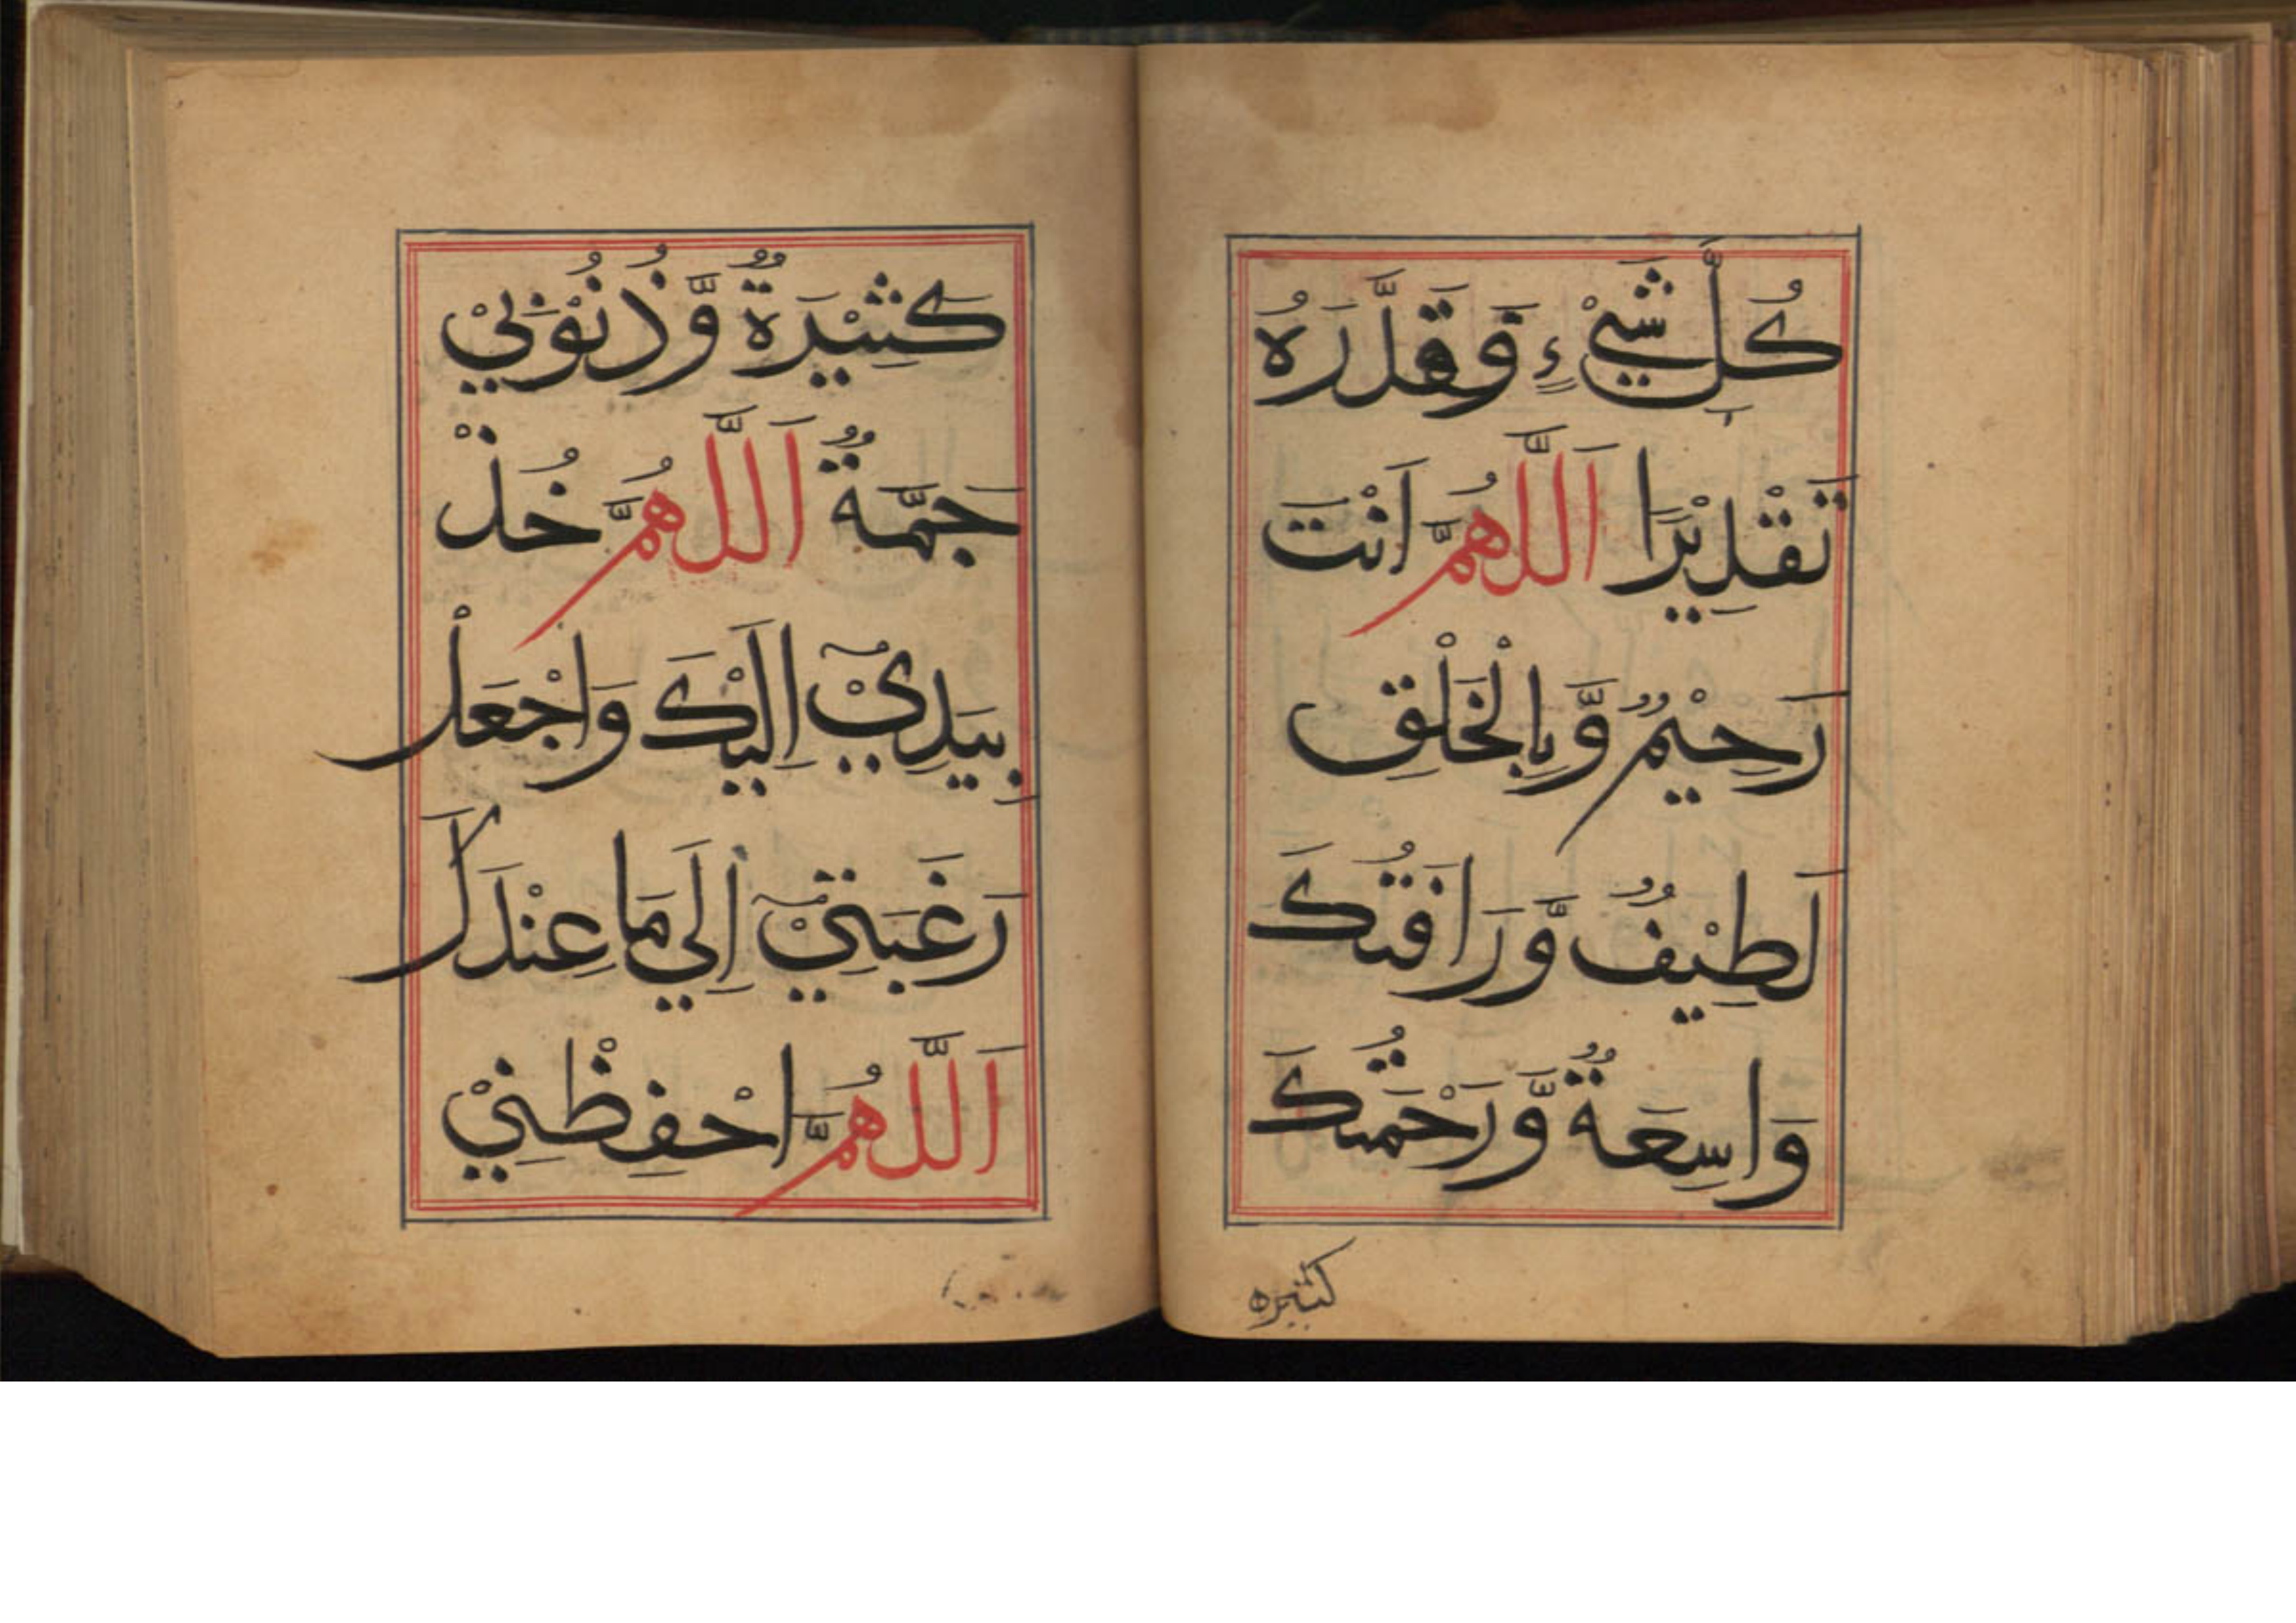 كُلَّ شَيْءٍ وَقَدَّرَهُ
تَقْدِيْرًا اَللَّهُمَّ اَنْتَ
رَحِيْمٌ وَّبِالْخَلْقِ
لَطِيْفٌ وَّرَافَتُكَ
وَاسِعَةٌ وَّرَحْمَتُكَ
كثيره
كَثِيْرَةٌ وَّذُنُوْبِيْ
جَمَّةٌ اَللَّهُمَّ خُذْ
بِيَدِيْٓ اِلَيْكَ وَاجْعَلْ
رَغْبَتِيْٓ اِلَي مَا عِنْدَكَ
اَللَّهُمَّ احْفِظْنِيْ